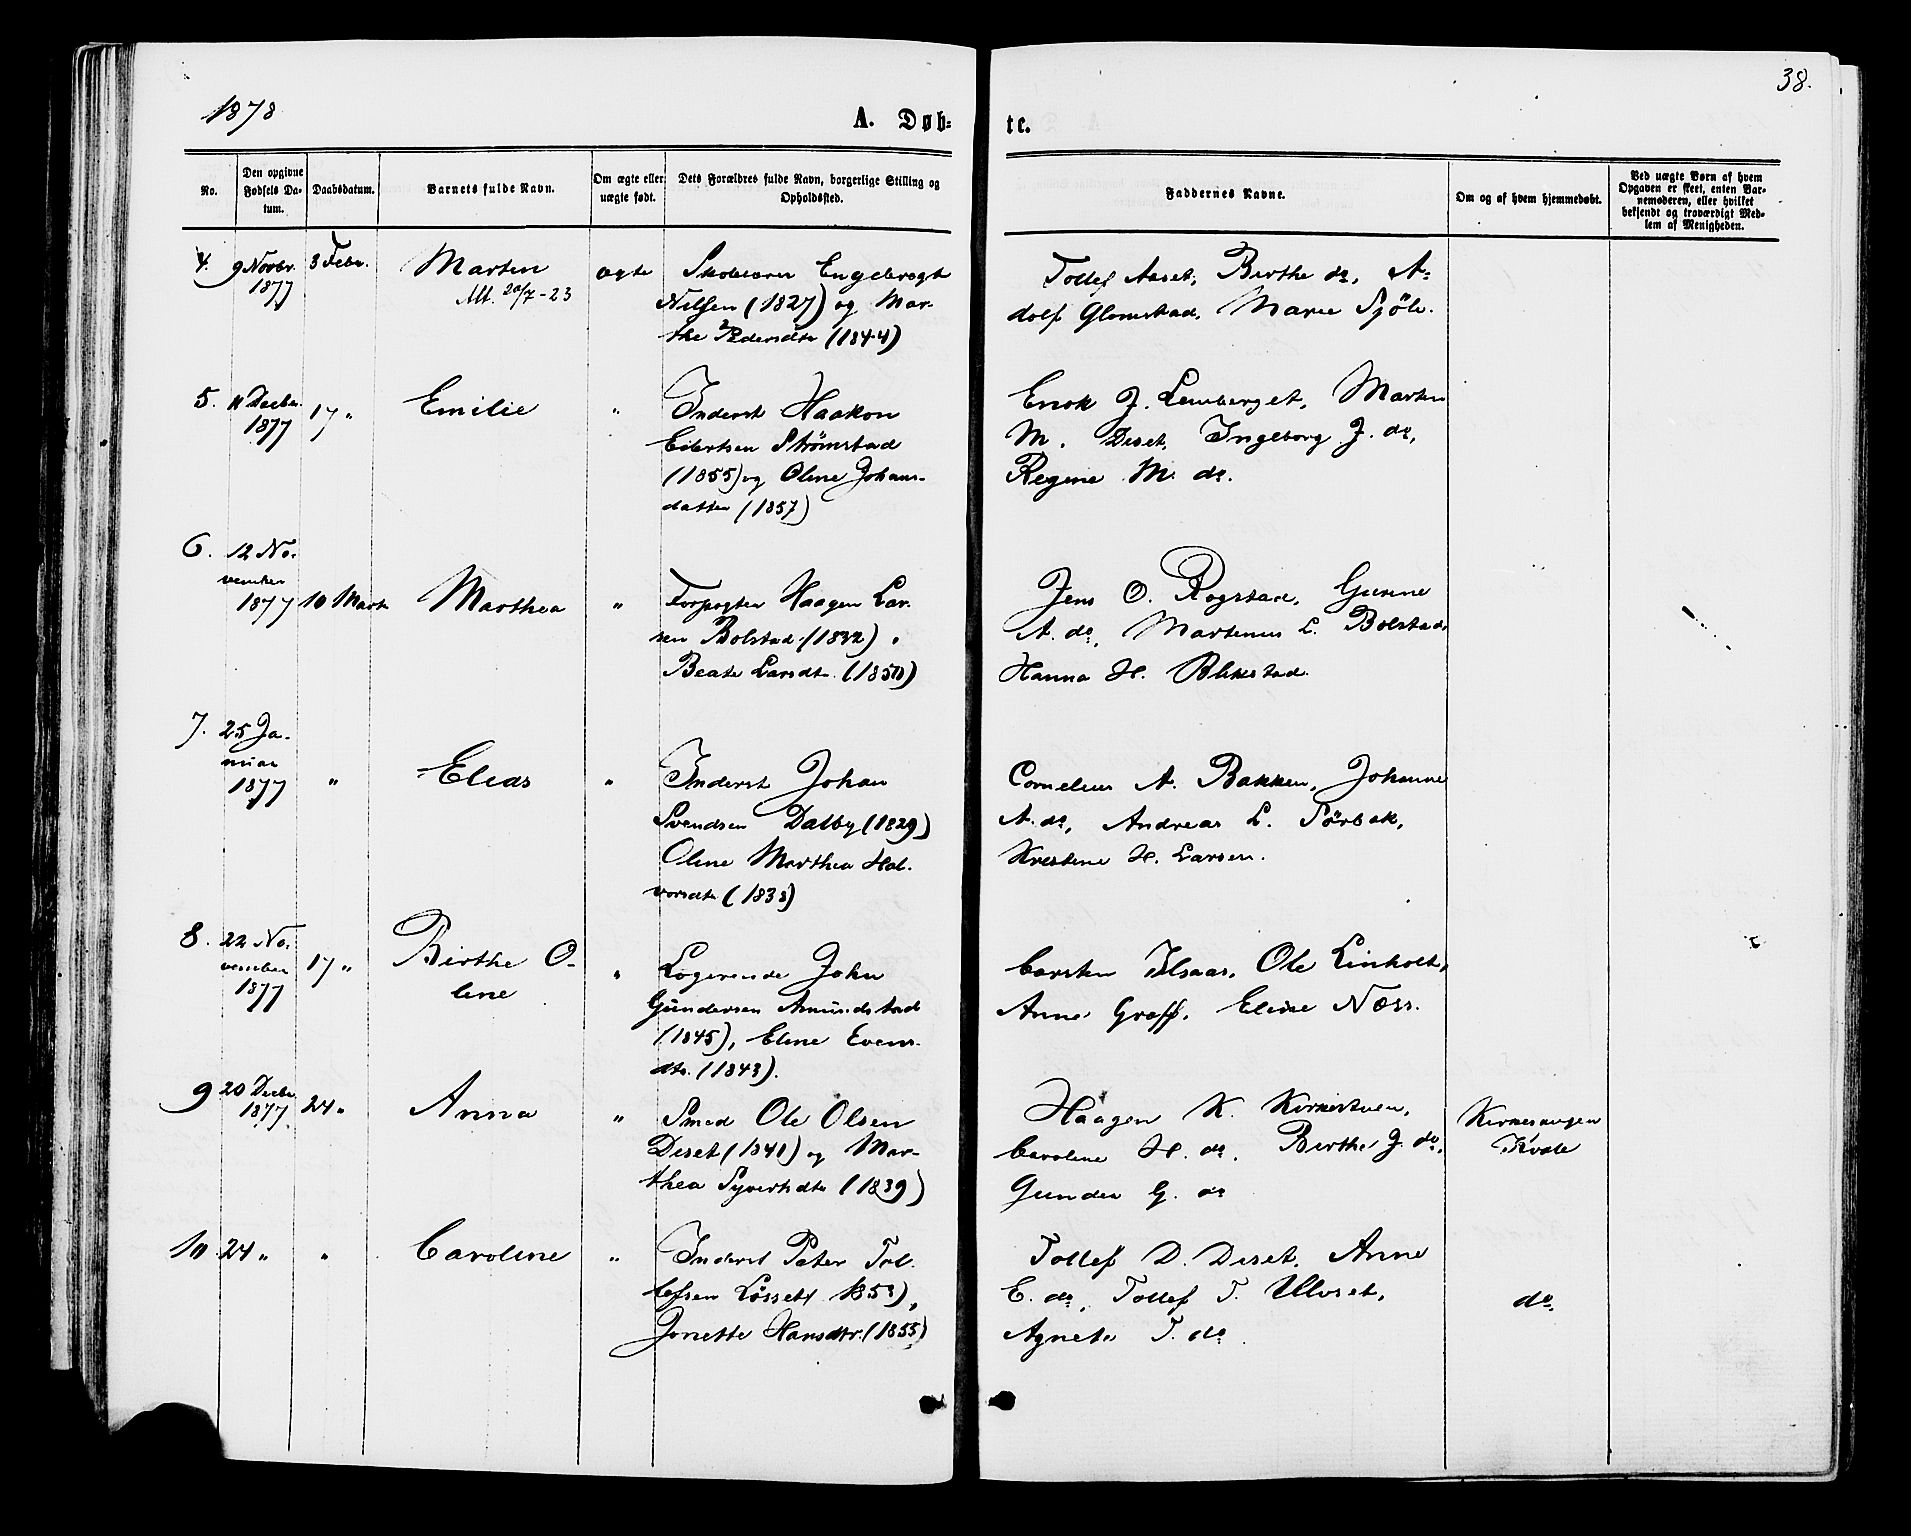 1878
38.
A. Døb-
te.
No.
Den opgivne Fødsels Da-tum.
Daabsdatum.
Barnets fulde Navn.
Om ægte eller uægte født.
Dets Forældres fulde Navn, borgerlige Stilling og Opholdssted.
Faddernes Navne.
Om og af hvem hjemmedøbt.
Ved uægte Børn af hvem
Opgaven er skeet, enten Bar-
nemoderen, eller hvilket
bekjendt og troværdigt Med-
lem af Menigheden.
4. 9 Novbr. 3 Febr. Marten ægte Skolelærer Engebregt
1877 Att. 20/7-23 Nilsen (1827) og Mar-
the Pedersdtr (1844)
Tollef Aaset, Birthe do, A-
dolf Glomstad, Marie Sjöli.
5. 11 Decbr. 17 " Emilie " Inderst Haakon
1877 Eilertsen Strømstad
(1855) og Oline Johans-
datter (1857)
Enok J. Lemberget, Marten
M. Diset, Ingeborg J. do,
Regine M. do.
6. 12 No-
vember
1877 10 Marts Marthea " Forpagter Haagen Lar-
sen Bolstad (1832)
Beate Larsdtr. (1850)
Jens O. Rogstad, Gurine
A. do, Martinus L. Bolstad,
Hanna H. Blikstad.
7. 25 Ja-
nuar
1877 " Elias " Inderst Johan
Svendsen Dalby (1829)
Oline Marthea Hal-
vorsdtr (1838)
Cornelius A. Bakken, Johanne
A. do, Andreas L. Sörbak,
Kristine H. Larsen.
8. 22 No-
vember 17 " Birthe O- " Logerende John
1877 line Gundersen Amundstad
(1845), Eline Evens-
dtr. (1843).
Carsten Ilsaas, Ole Linholt,
Anne Graff, Eline Næss.
9 20 Decbr 24 " Anna " Smed Ole Olsen
1877. Diset (1840) og Mar-
thea Syvertsdtr (1839)
Haagen K. Kirkestuen,
Caroline H. do, Birthe J. do,
Gunder G. do
Kirkesanger
Kvale
10 24 " " Caroline " Inderst Peter Tol-
lefsen Lösset (1853),
Jonette Hansdtr. (1855)
Tollef D. Diset, Anne
E. do, Tollef T. Ulvset,
Agnete T. do.
do.